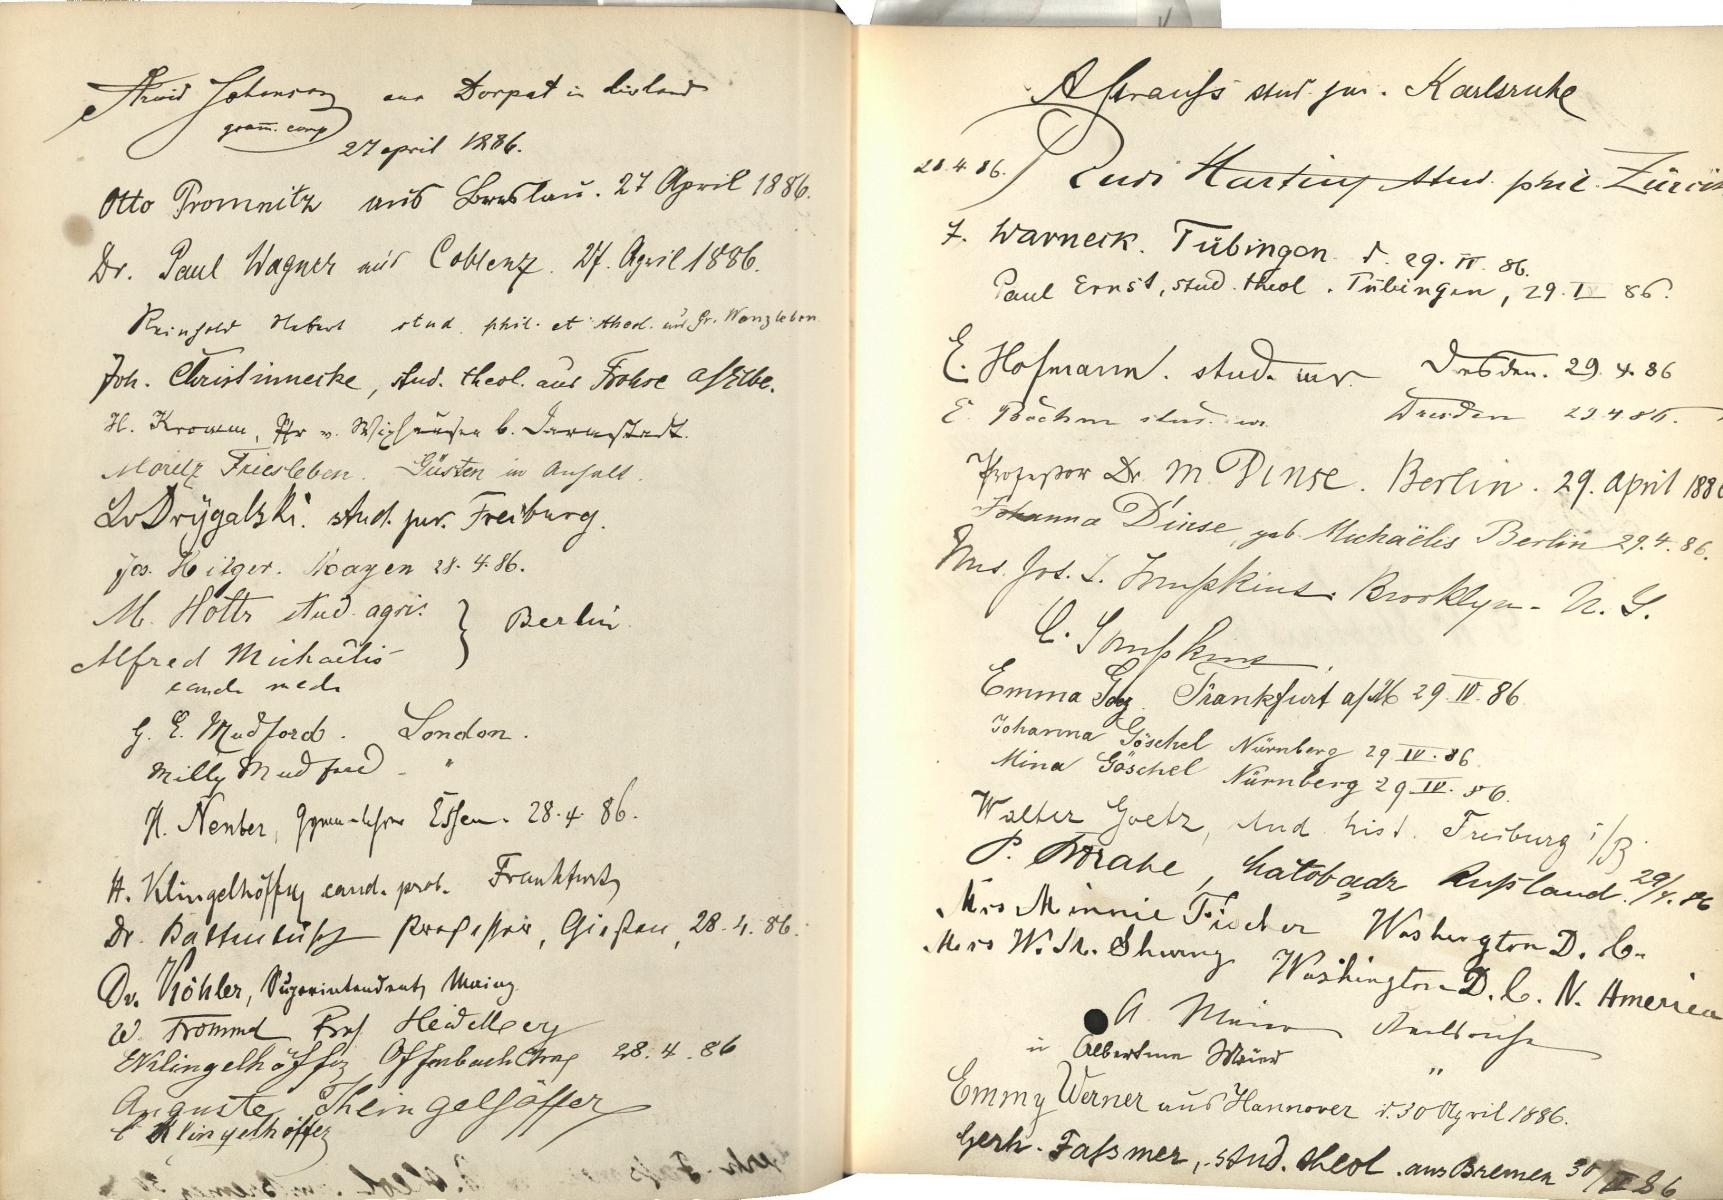 Arvid Johanson aus Dorpat in Livland
gramm. comp
27 april 1886.
Otto Promnitz aus Breslau. 27 April 1886.
Dr. Paul Wagner aus Coblenz. 27. April 1886.
Reinhold Hebert stud. phil. et theol. aus Gr. Wanzleben
Joh. Christinnecke, stud. theol. aus Frohse a/Elbe.
H. Kromm, Pfr v. b. Darmstadt.
Moritz Friesleben. Güsten in Anhalt.
v Drÿgalski. stud. jur. Freiburg.
Jos. Hilger. Mayen 28. 4. 86.
M. Holtz stud. agri. } Berlin
Alfred Michaëlis
cand. med.
G. E. Mudford. London.
Milly Mudford - "
H. Essen. 28. 4. 86.
H. Klingelhöffer cand. prob. Frankfurt
Dr. Kattenbusch Professor, Gießen, 28. 4. 86.
Dr. Köhler, Superintendent, Mainz
W Frommel Prof. Heidelberg
Klingelhöffer Offenbach 28. 4. 86
Auguste Klingelhöffer
C Klingelhöffer
A Strauß stud. jur. Karlsruhe
28. 4. 86. Rudi Harting stud. phil. Zürich
J. Warneck. Tübingen. d. 29. IV. 86.
Paul Ernst, stud. theol. Tübingen, 29. IV 86.
E. Hofmann. stud. iur. Dresden. 29. 4. 86
E. Böehm stud. iur. Dresden 29 4 86.
Professor Dr. M. Dinse. Berlin. 29. April 1886
Johanna Dinse, geb. Michaëlis Berlin 29. 4. 86.
Mrs. Jos. L. Brooklyn - N. Y.
Emma Frankfurt a/M 29. IV. 86
Johanna Göschel Nürnberg 29 IV. 86
Mina Göschel Nürnberg 29 IV. 86.
Walter Goetz, stud. hist. Freiburg i/B
P. Rußland. 29/4. 86
Miss Minnie Washington D. C.
Miss W. Washington D. C. N. America
A.
u Albertine
"
Emmy Werner aus Hannover d. 30 April 1886.
Gerh. Faßmer, stud. theol. aus Bremen 30/IV 86